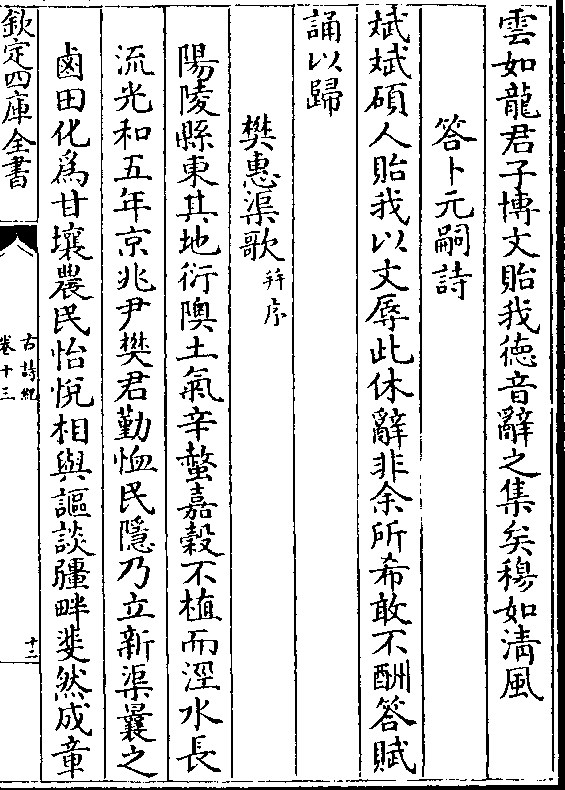 雲如龍君子博文貽我徳音辭之集矣穆如清風
答卜元嗣詩
斌斌碩人貽我以文辱此休辭非余所希敢不酬答賦
誦以歸
樊惠渠歌并序
陽陵縣東其地衍隩土氣辛螫嘉穀不植而涇水長
流光和五年京兆尹樊君勤恤民隱乃立新渠曩之
鹵田化為甘壤農民怡悅相與謳談疆畔斐然成章
欽定四庫全書
古詩紀
卷十三
十二